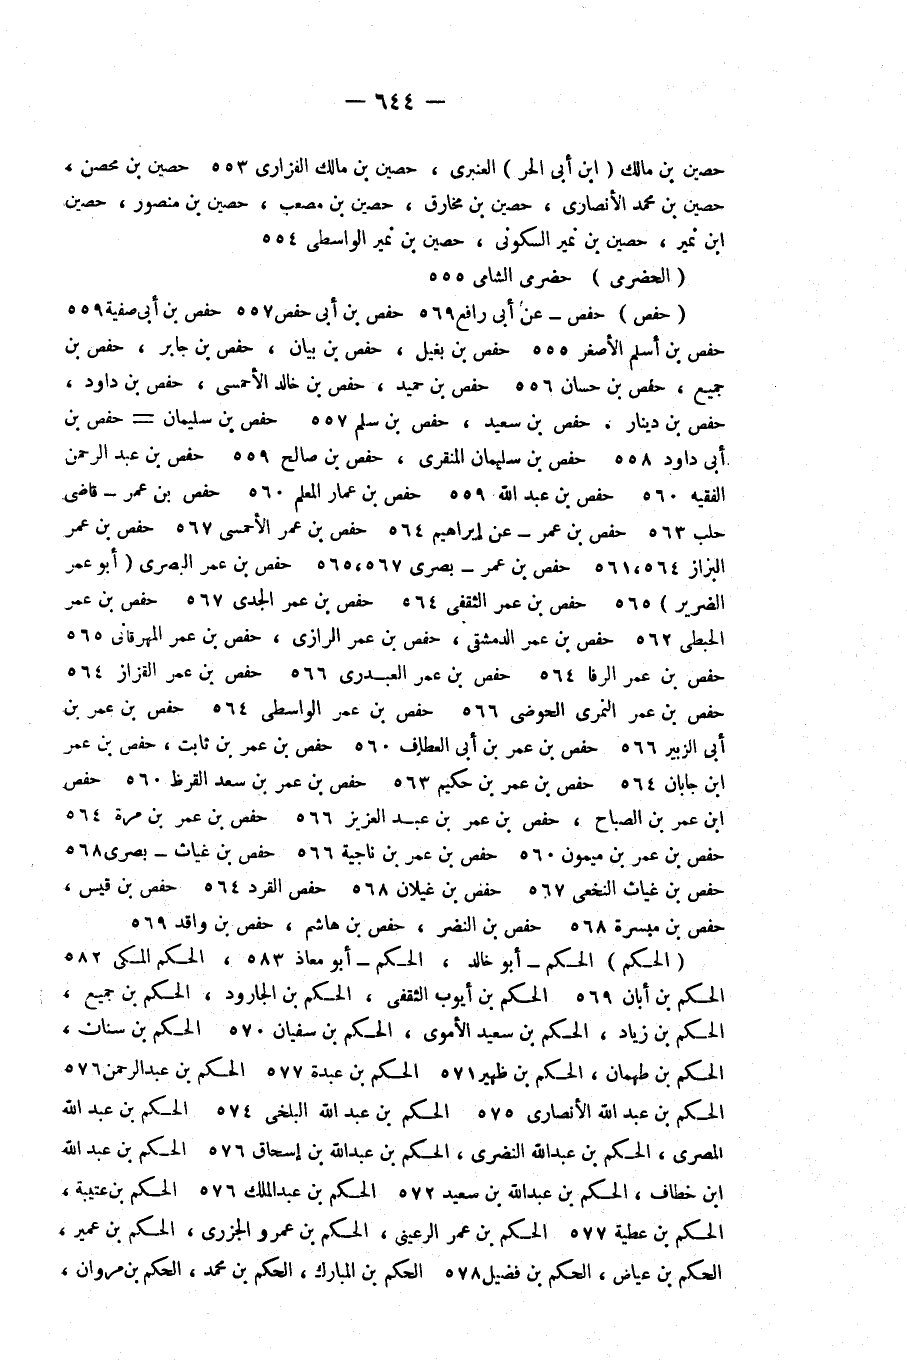 — ٦٤٤ —
حصين بن مالك ( ابن أبى الحر ) العنبرى ، حصين بن مالك الفزارى ٥٥٣ حصين بن محصن ،
حصين بن محمد الأنصارى ، حصين بن مخارق ، حصين بن مصعب ، حصين بن منصور ، حصين
ابن نمير ، حصين بن نمير السكونى ، حصين بن نمير الواسطى ٥٥٤
( الحضرمى ) حضرمى الشامى ٥٥٥
( حفص ) حفص – عن أبى رافع ٥٦٩ حفص بن أبى حفص ٥٥٧ حفص بن أبى صفية ٥٥٩
حفص بن أسلم الأصفر ٥٥٥ حفص بن بغيل ، حفص بن بيان ، حفص بن جابر ، حفص بن
جميع ، حفص بن حسان ٥٥٦ حفص بن حميد ، حفص بن خالد الأحمسى ، حفص بن داود ،
حفص بن دينار ، حفص بن سعيد ، حفص بن سلم ٥٥٧ حفص بن سليمان = حفص بن
أبى داود ٥٥٨ حفص بن سليمان المنقرى ، حفص بن صالح ٥٥٩ حفص بن عبد الرحمن
الفقيه ٥٦٠ حفص بن عبد الله ٥٥٩ حفص بن عمار المعلم ٥٦٠ حفص بن عمر – قاضى
حلب ٥٦٣ حفص بن عمر – عن إبراهيم ٥٦٤ حفص بن عمر الأحمسى ٥٦٧ حفص بن عمر
البزاز ٥٦٤،٥٦١ حفص بن عمر – بصرى ٥٦٧،٥٦٥ حفص بن عمر البصرى ( أبو عمر
الضرير ) ٥٦٥ حفص بن عمر الثقفى ٥٦٤ حفص بن عمر الجدى ٥٦٧ حفص بن عمر
الحبطى ٥٦٢ حفص بن عمر الدمشقى ، حفص بن عمر الرازى ، حفص بن عمر المهرقانى ٥٦٥
حفص بن عمر الرفا ٥٦٤ حفص بن عمر العبدرى ٥٦٦ حفص بن عمر القزاز ٥٦٤
حفص بن عمر النمرى الحوضى ٥٦٦ حفص بن عمر الواسطى ٥٦٤ حفص بن عمر بن
أبى الزبير ٥٦٦ حفص بن عمر بن أبى العطاف ٥٦٠ حفص بن عمر بن ثابت ، حفص بن عمر
ابن جابان ٥٦٤ حفص بن عمر بن حكيم ٥٦٣ حفص بن عمر بن سعد القرظ ٥٦٠ حفص
ابن عمر بن الصباح ، حفص بن عمر بن عبد العزيز ٥٦٦ حفص بن عمر بن مرة ٥٦٤
حفص بن عمر بن ميمون ٥٦٠ حفص بن عمر بن ناجية ٥٦٦ حفص بن غياث – بصرى ٥٦٨
حفص بن غياث النخعى ٥٦٧ حفص بن غيلان ٥٦٨ حفص القرد ٥٦٤ حفص بن قيس ،
حفص بن ميسرة ٥٦٨ حفص بن النضر ، حفص بن هاشم ، حفص بن واقد ٥٦٩
( الحكم ) الحكم – أبو خالد ، الحكم – أبو معاذ ٥٨٣ ، الحكم المكى ٥٨٢
الحكم بن أبان ٥٦٩ الحكم بن أيوب الثقفى ، الحكم بن الجارود ، الحكم بن جميع ،
الحكم بن زياد ، الحكم بن سعيد الأموى ، الحكم بن سفيان ٥٧٠ الحكم بن سنان ،
الحكم بن طهمان ، الحكم بن ظهير ٥٧١ الحكم بن عبدة ٥٧٧ الحكم بن عبدالرحمن ٥٧٦
الحكم بن عبد الله الأنصارى ٥٧٥ الحكم بن عبد الله البلخى ٥٧٤ الحكم بن عبد الله
المصرى ، الحكم بن عبدالله النضرى ، الحكم بن عبدالله بن إسحاق ٥٧٦ الحكم بن عبد الله
ابن خطاف ، الحكم بن عبدالله بن سعيد ٥٧٢ الحكم بن عبدالملك ٥٧٦ الحكم بن عتيبة ،
الحكم بن عطية ٥٧٧ الحكم بن عمر الرعينى ، الحكم بن عمرو الجزرى ، الحكم بن عمير ،
الحكم بن عياض ، الحكم بن فضيل ٥٧٨ الحكم بن المبارك ، الحكم بن محمد ، الحكم بن مروان ،